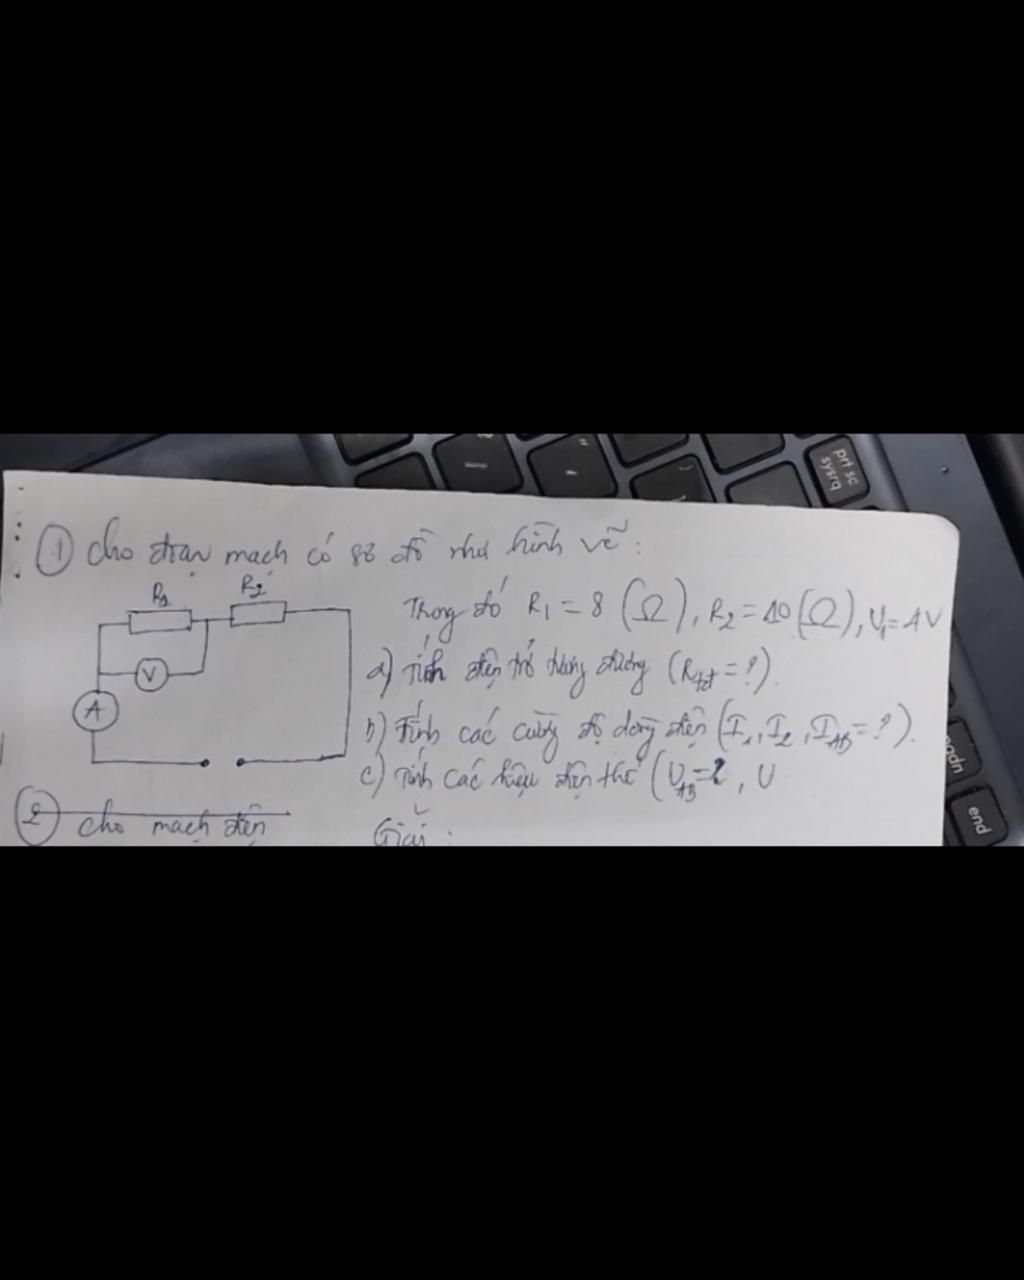 1 Cho đoạn mạch có sơ đồ như hình vẽ:
R1
R2
V
A
Trong đó R1 = 8 (Ω), R2 = 10 (Ω), U1 = 4V
a) Tính điện trở tương đương (Rtđ = ?).
b) Tính các cường độ dòng điện (I1, I2, IAB = ?).
c) Tính các hiệu điện thế (UAB = ?, U
2 cho mạch điện
Giải:
prt sc
sysrq
end